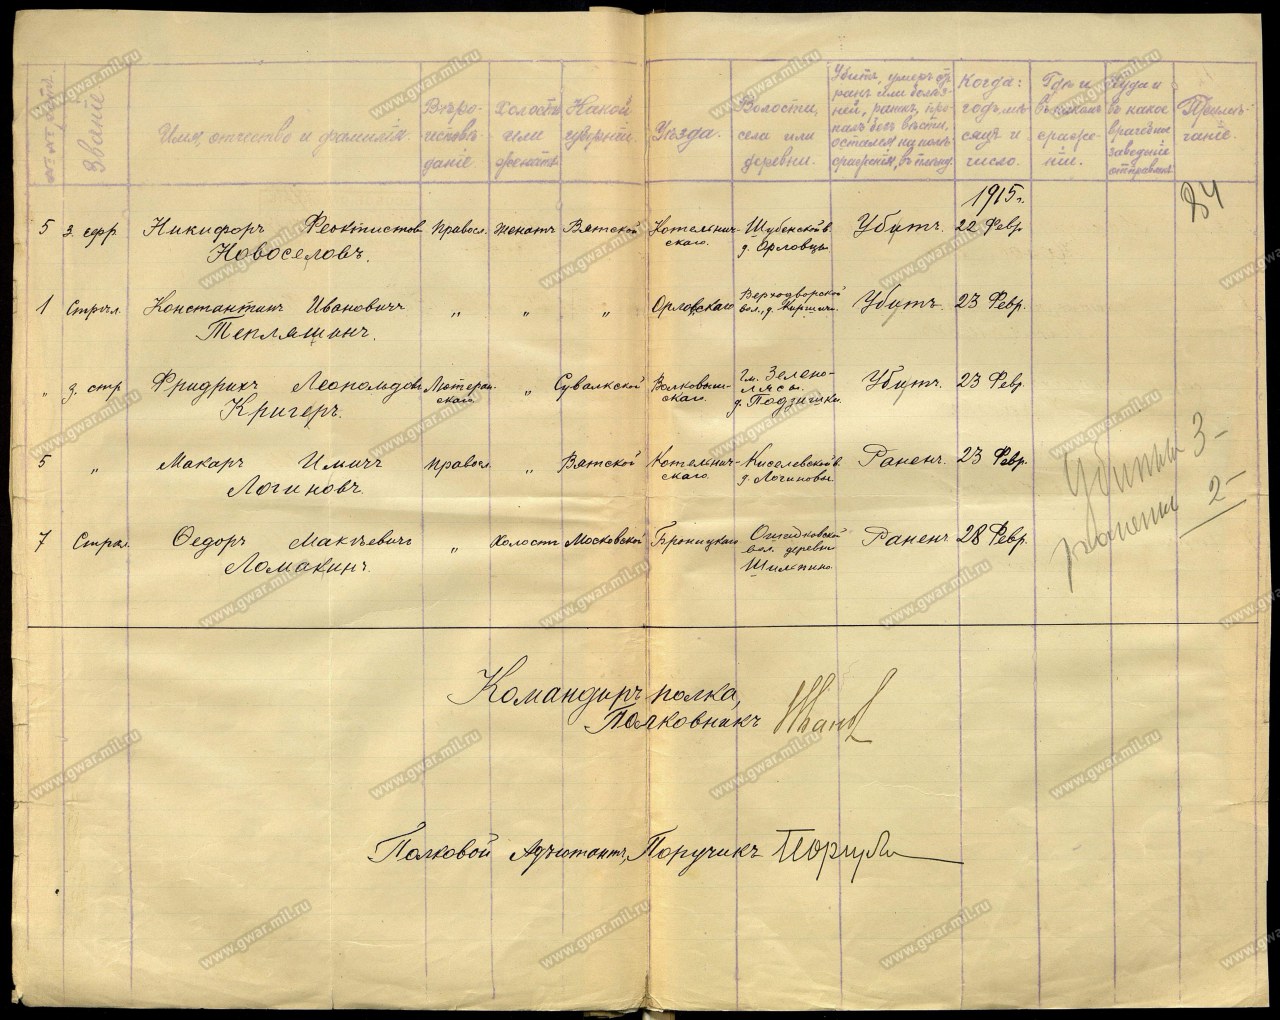 Званіе.
Имя, отчество и фамилія.
Вѣро-
исповѣ-
даніе
Холостъ
или
женатъ
Какой
губерніи.
Уѣзда.
Волости,
села или
деревни.
Убитъ, умеръ отъ
ранъ или болѣз-
ней, раненъ, про-
палъ безъ вѣсти,
остался на полѣ
сраженія, въ плѣну
Когда:
годъ, мѣ-
сяцъ и
число.
Гдѣ и
въ какомъ
сраже-
ніи.
Куда и
въ какое
врачебное
заведеніе
отправленъ
Примѣ-
чаніе.
84
1915 г.
5 з. ефр. Никифоръ Феоктистовъ Правосл. женатъ Вятской Котельнич- Шубенской в. Убитъ. 22 Февр.
Новоселовъ. скаго. д. Орловцы
1 Стрѣл. Константинъ Ивановичъ " " " Орловскаго Верходворской Убитъ. 23 Февр.
Тепляшинъ. вол., д. Киршичи
" з. стр. Фридрихъ Леопольдовъ Лютеран- " Сувалкской Волковыш- Гм. Зелено- Убитъ. 23 Февр.
Кригеръ. скаго скаго. д. Подзишки.
5 " Макаръ Ильичъ Правосл. " Вятской Котельнич- Киселевской в. Раненъ. 23 Февр.
Логиновъ. скаго. д. Логиновы.
7 Стрѣл. Ѳедоръ Макѣевичъ " Холостъ Московской Бронницкаго Раненъ 28 Февр.
Ломакинъ. вол. деревни
Убитыхъ 3-
раненыхъ 2-
Командиръ полка,
Полковникъ
Полковой Адъютантъ, Поручикъ
www.gwar.mil.ru